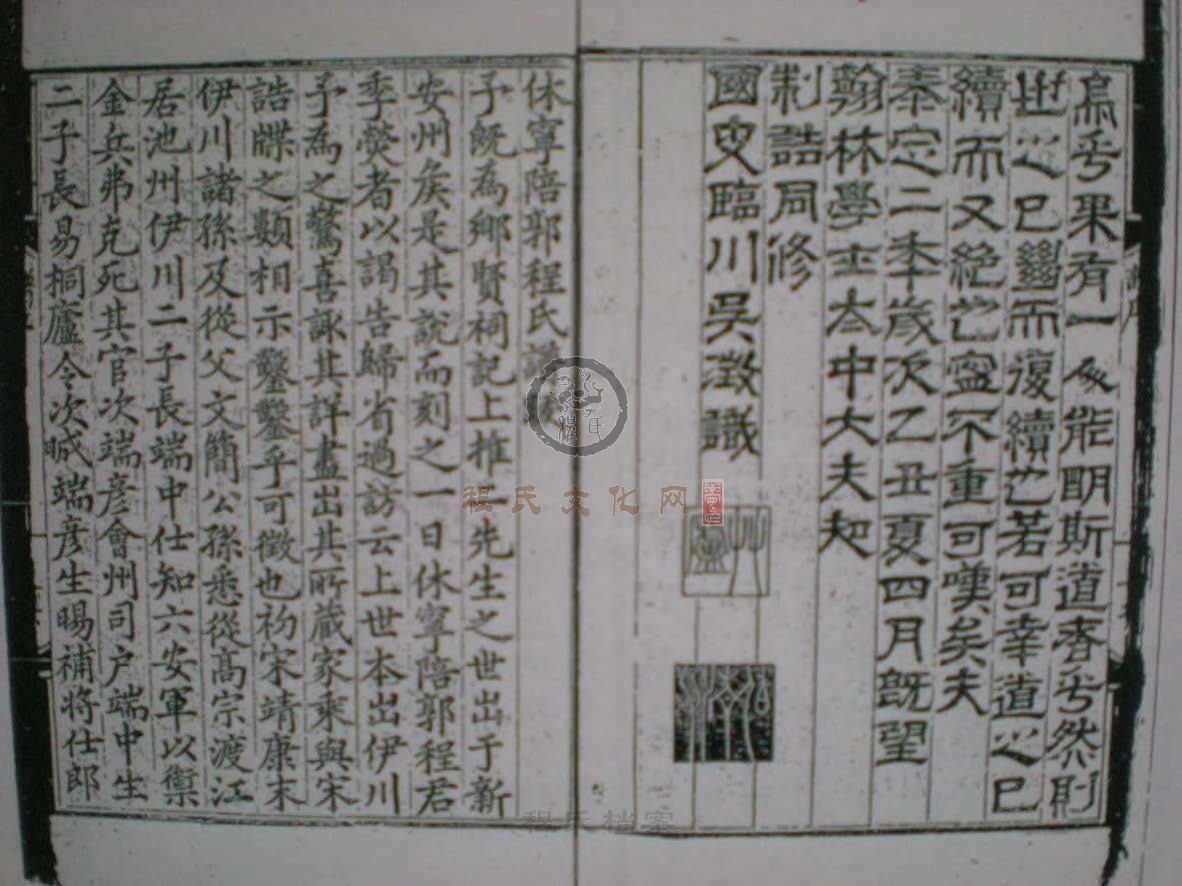 烏乎果有一人焉能明斯道者乎然則
世之已斷而復續也若可幸道之已
續而又絕也寧不重可嘆矣夫
泰定二年歲次乙丑夏四月既望
翰林學士太中大夫知
制誥同修
國史臨川吳澂識
休寧陪郭程氏譜
予既為鄉賢祠記上推二先生之世出于新
安州矣是其說而刻之一日休寧陪郭程君
季熒者以謁告歸省過訪云上世本出伊川
予為之驚喜諏其詳盡出其所藏家乘與宋
誥牒之類相示鑿鑿乎可徵也初宋靖康末
伊川諸孫及從父文簡公孫悉從高宗渡江
居池州伊川二子長端中仕知六安軍以禦
金兵弗克死其官次端彥會州司户端中生
二子長易桐廬令次晹端彥生暘補將仕郎
程氏文化网
程氏档案